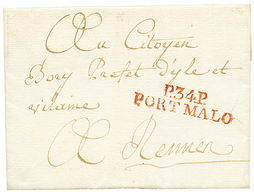 Au Citoyen
Bory Prefet D'yle et
vilaine
P.34.P
PORT MALO
A Rennes